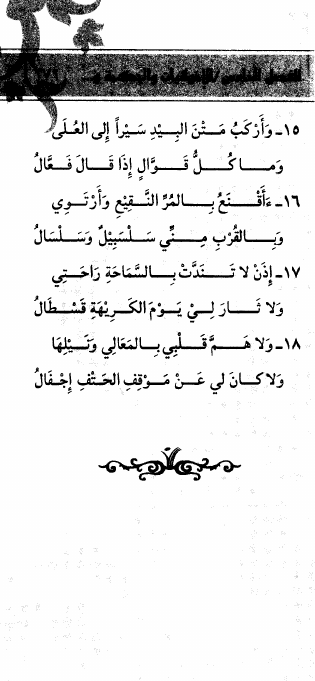 ١٥ـ وَأَرْكَبُ مَتْنَ البِيْدِ سَيْراً إِلى العُلَى
وَمـا كُـلُّ قَـوَّالٍ إِذَا قَالَ فَعَّالُ
١٦ـ ءَأَقْنَعُ بِالمُرِّ النَّقِيْعِ وَأَرْتَوِي
وَبِالقُرْبِ مِنِّي سَلْسَبِيْلٌ وَسَلْسَالُ
١٧ـ إِذَنْ لا تَنَدَّتْ بِالسَّمَاحَةِ رَاحَتِي
وَلا ثَارَ لِيْ يَوْمَ الكَرِيْهَةِ قَسْطَالُ
١٨ـ وَلا هَمَّ قَلْبِي بِالمَعَالِي وَنَيْلِهَا
وَلا كَانَ لي عَنْ مَوْقِفِ الحَتْفِ إِجْفَالُ